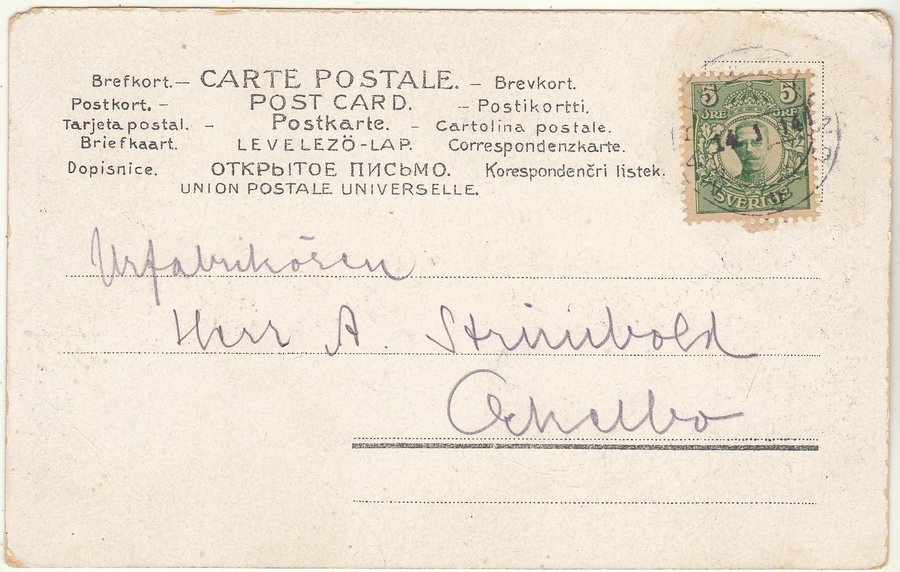 Brefkort. — CARTE POSTALE. — Brevkort.
Postkort. — POST CARD. — Postikortti.
Tarjeta postal. — Postkarte. — Cartolina postale.
Briefkaart. LEVELEZŐ-LAP. Correspondenzkarte.
Dopisnice. ОТКРЫТОЕ ПИСЬМО. Korespondenčri listek.
UNION POSTALE UNIVERSELLE.
5 5
ÖRE ÖRE
14 1 14
SVERIGE
Urfabrikören
Herr A. Strimbold
Ockelbo